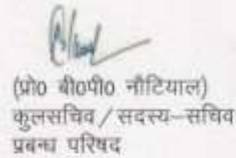 (प्रो० बी०पी० नौटियाल)
कुलसचिव / सदस्य–सचिव
प्रबन्ध परिषद